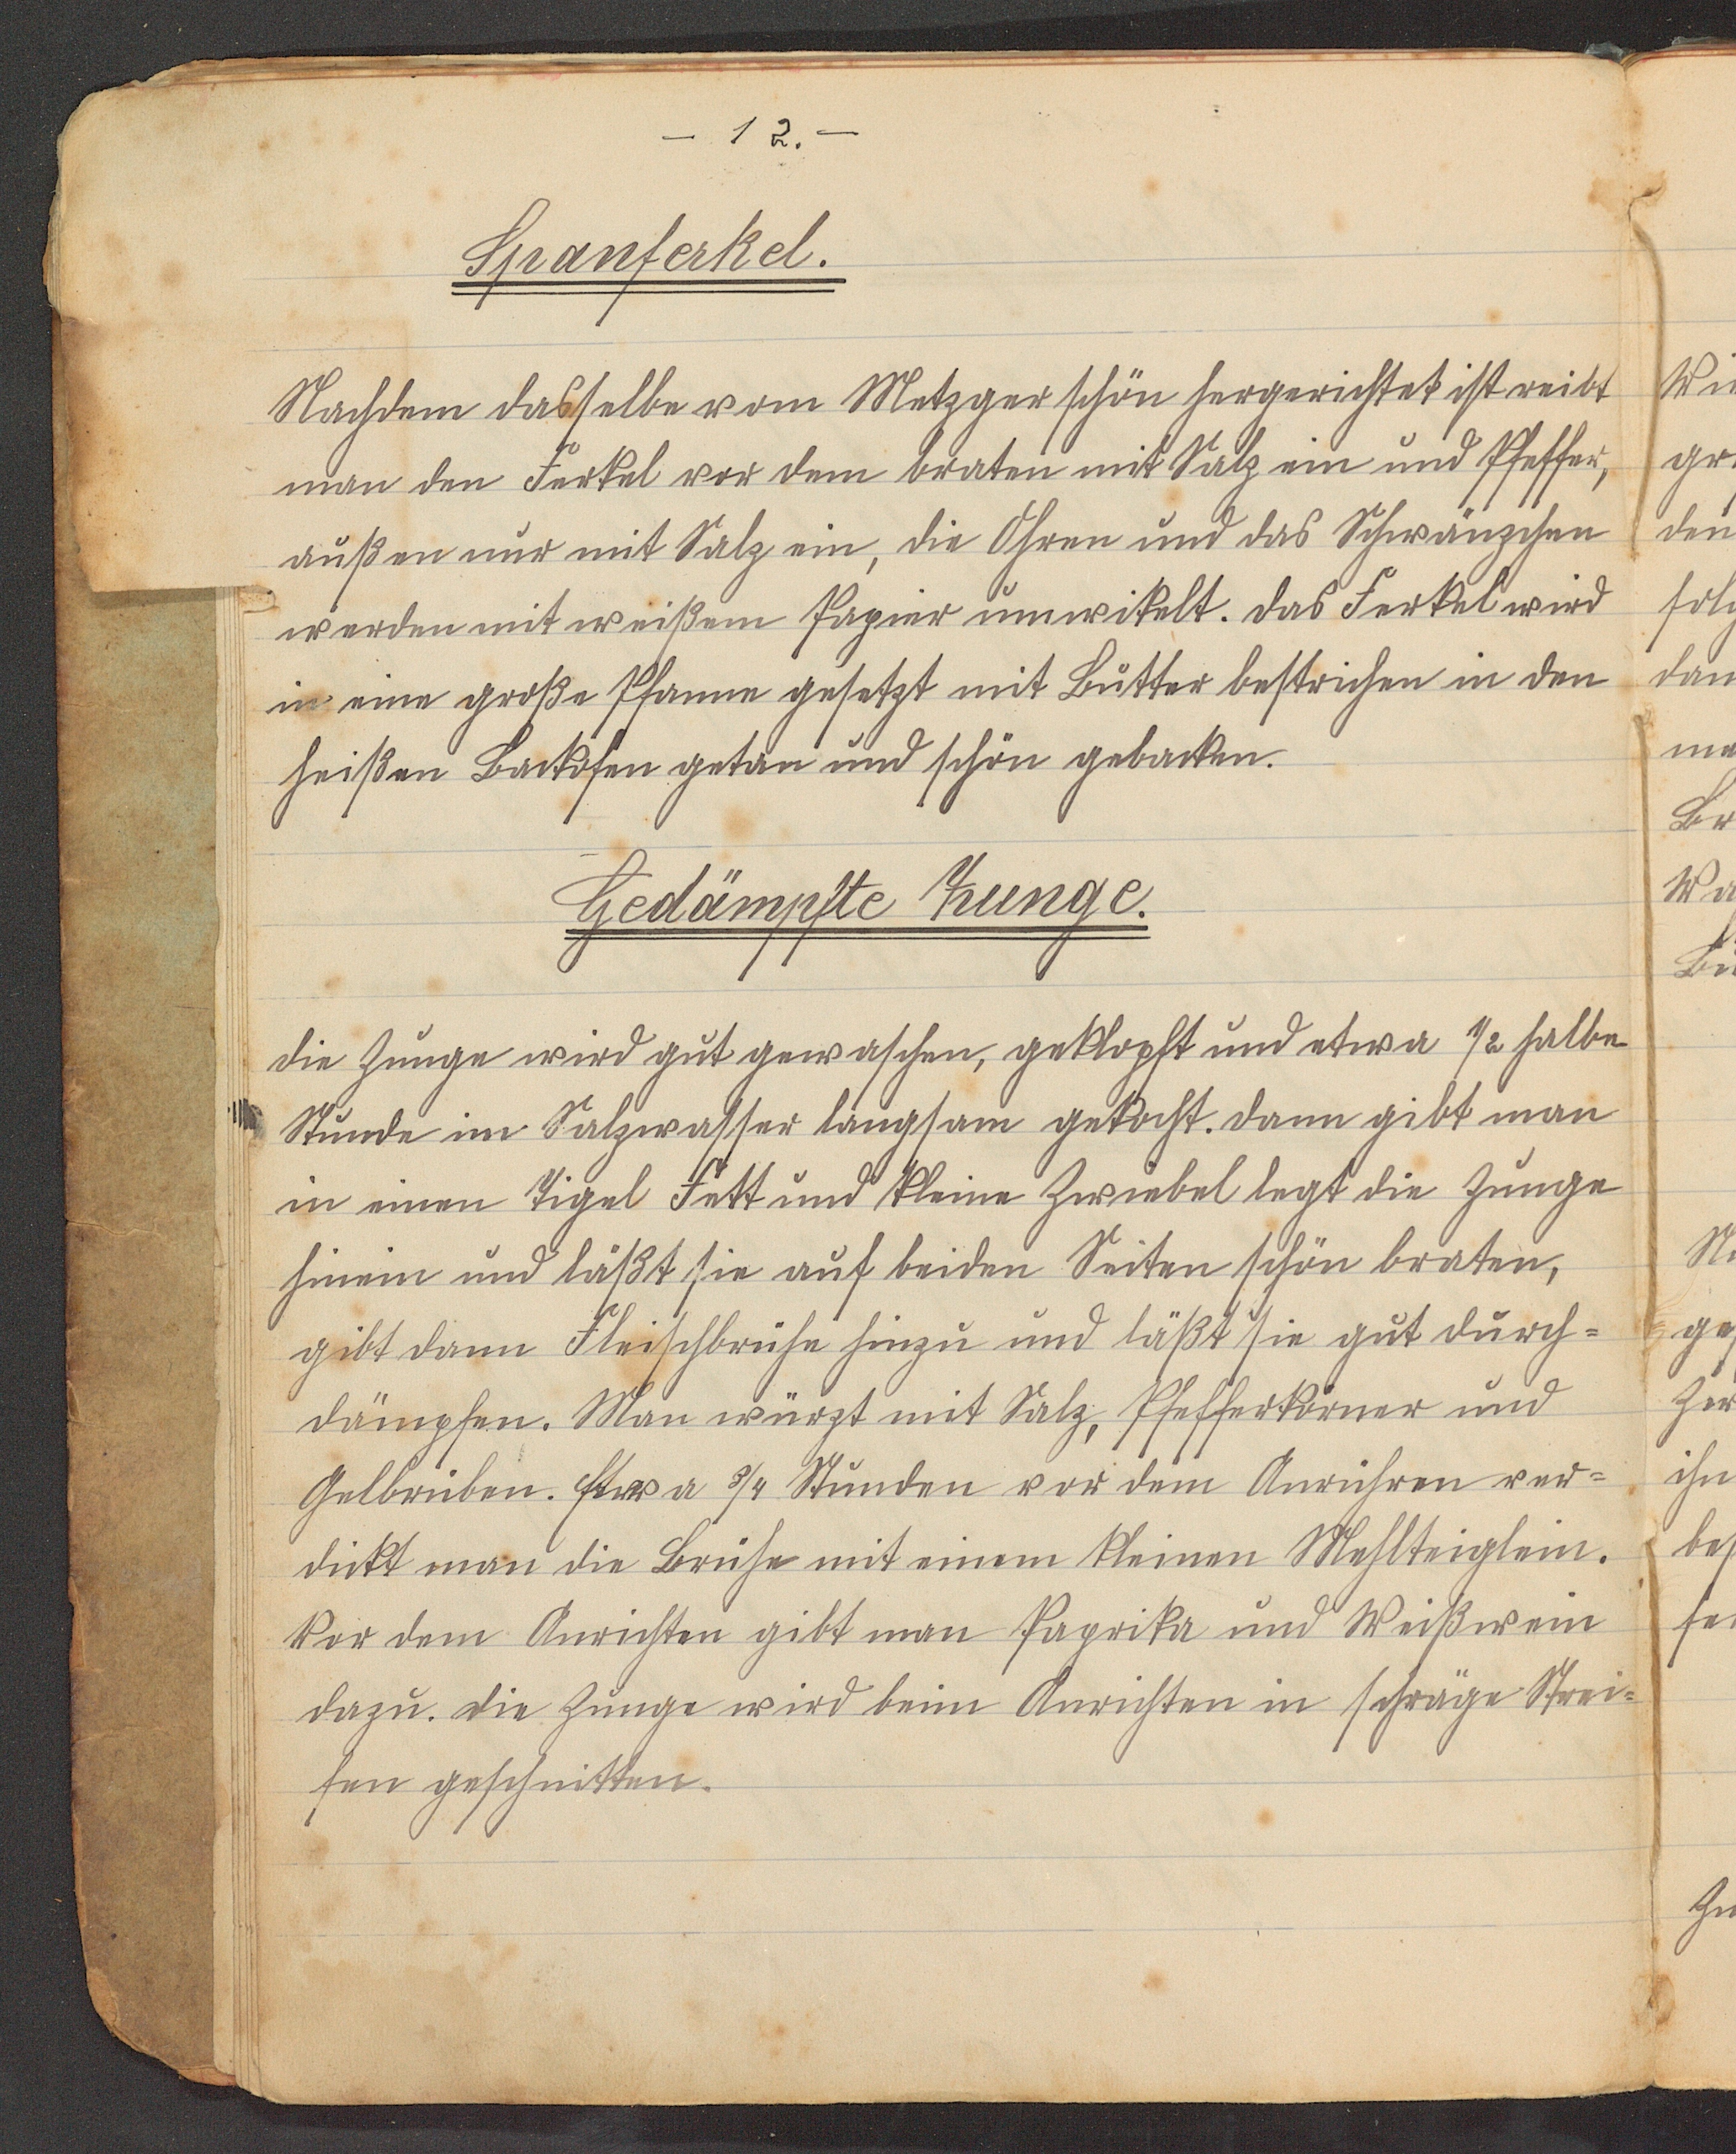 - 12. -
Spanferkel.
Nachdem dasselbe vom Metzger schön hergerichtet ist reibt
man den Ferkel vor dem braten mit Salz ein und Pfeffer,
außen nur mit Salz ein, die Ohren und das Schwänzchen
werden mit weißem Papier umwikelt. das Ferkel wird
in eine große Pfanne gesetzt mit Butter bestrichen in den
heißen Backofen getan und schön gebacken.
Gedämpfte Zunge.
die Zunge wird gut gewaschen, geklopft und etwa 1/2 halbe
Stunde im Salzwasser langsam gekocht. dann gibt man
in einen Tigel Fett und kleine Zwiebel legt die Zunge
hinein und läßt sie auf beiden Seiten schön braten,
gibt dann Fleischbrühe hinzu und läßt sie gut durch=
dämpfen. Man würzt mit Salz, Pfefferkörner und
Gelbrüben. Etwa 3/4 Stunden vor dem Anrühren ver=
dickt man die Brühe mit einem kleinen Mehlteiglein.
Vor dem Anrichten gibt man Paprika und Weißwein
dazu. die Zunge wird beim Anrichten in schräge Strei=
fen geschnitten.